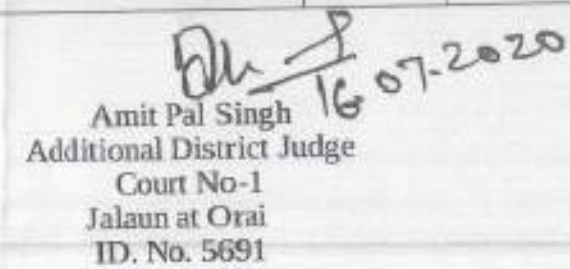 16-07-2020
Amit Pal Singh
Additional District Judge
Court No-1
Jalaun at Orai
ID. No. 5691